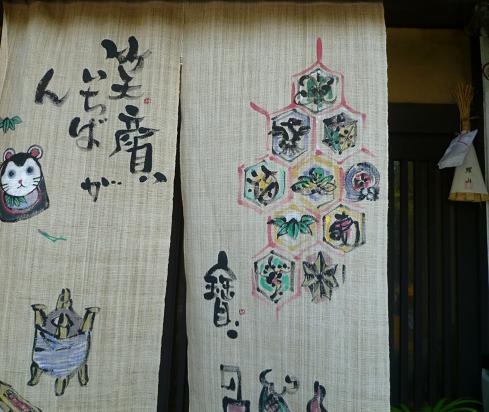 笑顔が
いちば
ん
寶